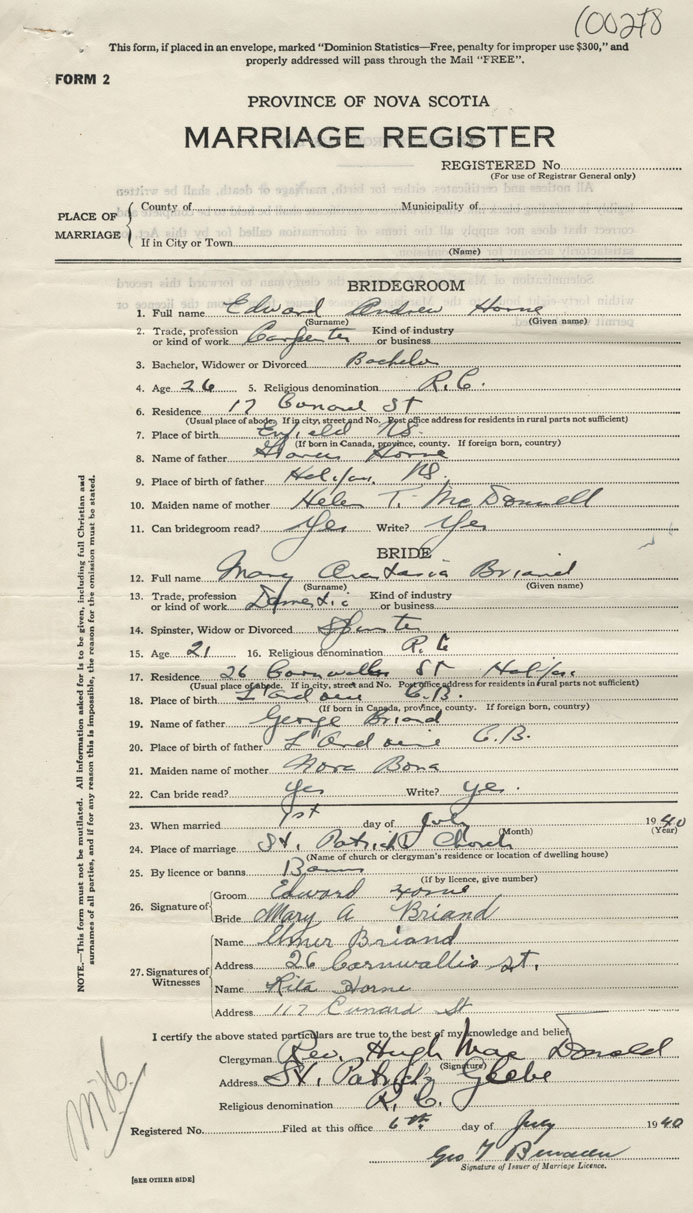 100278
This form, if placed in an envelope, marked "Dominion Statistics—Free, penalty for improper use $300," and
properly addressed will pass through the Mail "FREE".
FORM 2
PROVINCE OF NOVA SCOTIA
MARRIAGE REGISTER
REGISTERED No.
(For use of Registrar General only)
PLACE OF MARRIAGE
County of Municipality of
If in City or Town
(Name)
BRIDEGROOM
1. Full name Edward Andrew Horne
(Surname) (Given name)
2. Trade, profession or kind of work Carpenter Kind of industry or business
3. Bachelor, Widower or Divorced Bachelor
4. Age 26 5. Religious denomination R.C.
6. Residence 17 Cunard St
(Usual place of abode. If in city, street and No. Post office address for residents in rural parts not sufficient)
7. Place of birth Enfield NS.
(If born in Canada, province, county. If foreign born, country)
8. Name of father Horne
9. Place of birth of father Halifax, NS.
10. Maiden name of mother Helen T. McDonnell
11. Can bridegroom read? Yes Write? Yes
BRIDE
12. Full name Mary Briand
(Surname) (Given name)
13. Trade, profession or kind of work Domestic Kind of industry or business
14. Spinster, Widow or Divorced Spinster
15. Age 21 16. Religious denomination R.C
17. Residence 26 Cornwallis St Halifax
(Usual place of abode. If in city, street and No. Post office address for residents in rural parts not sufficient)
18. Place of birth L'Ardoise C.B.
(If born in Canada, province, county. If foreign born, country)
19. Name of father George Briand
20. Place of birth of father L'Ardoise C.B.
21. Maiden name of mother Nora Bona
22. Can bride read? yes Write? yes.
23. When married 1st day of July 1940
(Month) (Year)
24. Place of marriage St. Patrick's Church
(Name of church or clergyman's residence or location of dwelling house)
25. By licence or banns Banns
(If by licence, give number)
26. Signature of
Groom Edward Horne
Bride Mary A Briand
27. Signatures of Witnesses
Name Elmer Briand
Address 26 Cornwallis St.
Name Rita Horne
Address 117 Cunard St
I certify the above stated particulars are true to the best of my knowledge and belief,
Clergyman Rev. Hugh MacDonald
(Signature)
Address St. Patrick's Glebe
Religious denomination R.C.
Registered No. Filed at this office 6th day of July 1940
Geo
Signature of Issuer of Marriage Licence.
[SEE OTHER SIDE]
NOTE.—This form must not be mutilated. All information asked for is to be given, including full Christian and
surnames of all parties, and if for any reason this is impossible, the reason for the omission must be stated.